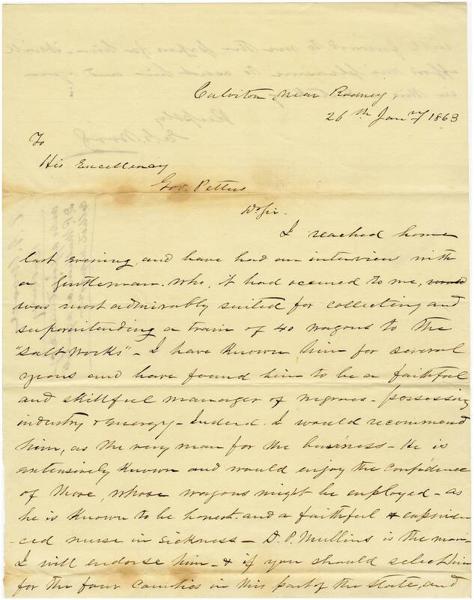 Calviton near Rodney
26th Jany 1863
To
His Excellency
Gov. Pettus
D. Sir.
I reached home
last evening and have had an interview with
a gentleman. who, it had occured to me, would
was most admirably suited for collecting and
superintending a train of 40 wagons to the
"Salt Works" - I have known him for several
years and have found him to be a faithful
and skillful manager of negroes - possessing
industry & energy - Indeed. I would recommend
him, as the very man for the business - He is
extensively known and would enjoy the confidence
of those, whose wagons might be employed - as
he is known to be honest and a faithful & experien-
ced nurse in sickness - D. P. Mullins is the man
I will endorse him - & if you should select him
for the four counties in this part of the state, and